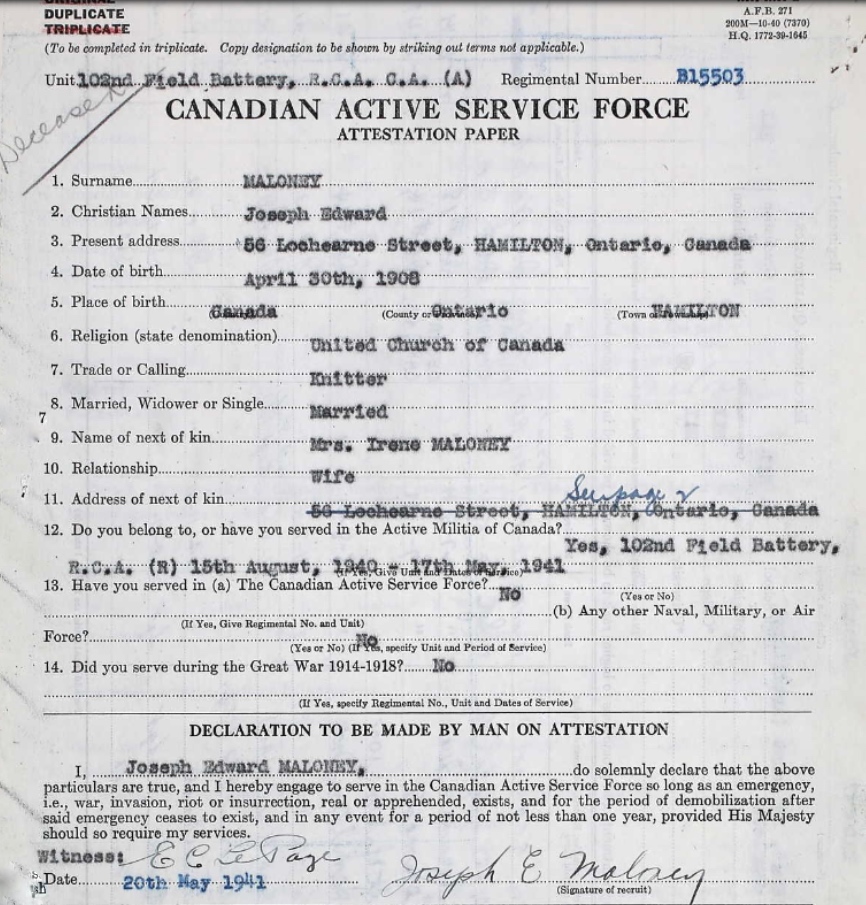 DUPLICATE
TRIPLICATE
A.F.B. 271
200M—10-40 (7370)
H.Q. 1772-39-1645
(To be completed in triplicate. Copy designation to be shown by striking out terms not applicable.)
Unit 102nd Field Battery, R.C.A. C.A. (A) Regimental Number B15503
CANADIAN ACTIVE SERVICE FORCE
ATTESTATION PAPER
1. Surname MALONEY
2. Christian Names Joseph Edward
3. Present address 56 Lochearne Street, HAMILTON, Ontario, Canada
4. Date of birth April 30th, 1908
5. Place of birth Canada (County or Ontario (Town or HAMILTON
6. Religion (state denomination) United Church of Canada
7. Trade or Calling Knitter
8. Married, Widower or Single Married
7
9. Name of next of kin Mrs. Irene MALONEY
10. Relationship Wife
See page 2
11. Address of next of kin 56 Lochearne Street, HAMILTON, Ontario, Canada
12. Do you belong to, or have you served in the Active Militia of Canada?
Yes, 102nd Field Battery,
R.C.A. (R) 15th August, 1940 - 17th May, 1941
(If Yes, Give Unit and Dates of Service)
13. Have you served in (a) The Canadian Active Service Force? No
(Yes or No)
(b) Any other Naval, Military, or Air
(If Yes, Give Regimental No. and Unit)
Force? No
(Yes or No) (If Yes, specify Unit and Period of Service)
14. Did you serve during the Great War 1914-1918? No
(If Yes, specify Regimental No., Unit and Dates of Service)
DECLARATION TO BE MADE BY MAN ON ATTESTATION
I, Joseph Edward MALONEY, do solemnly declare that the above
particulars are true, and I hereby engage to serve in the Canadian Active Service Force so long as an emergency,
i.e., war, invasion, riot or insurrection, real or apprehended, exists, and for the period of demobilization after
said emergency ceases to exist, and in any event for a period of not less than one year, provided His Majesty
should so require my services.
Witness: E C LePage
Joseph E Maloney
Date 20th May 1941
(Signature of recruit)